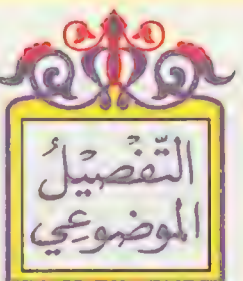 التّفْصِيْلُ
الموضوعِي